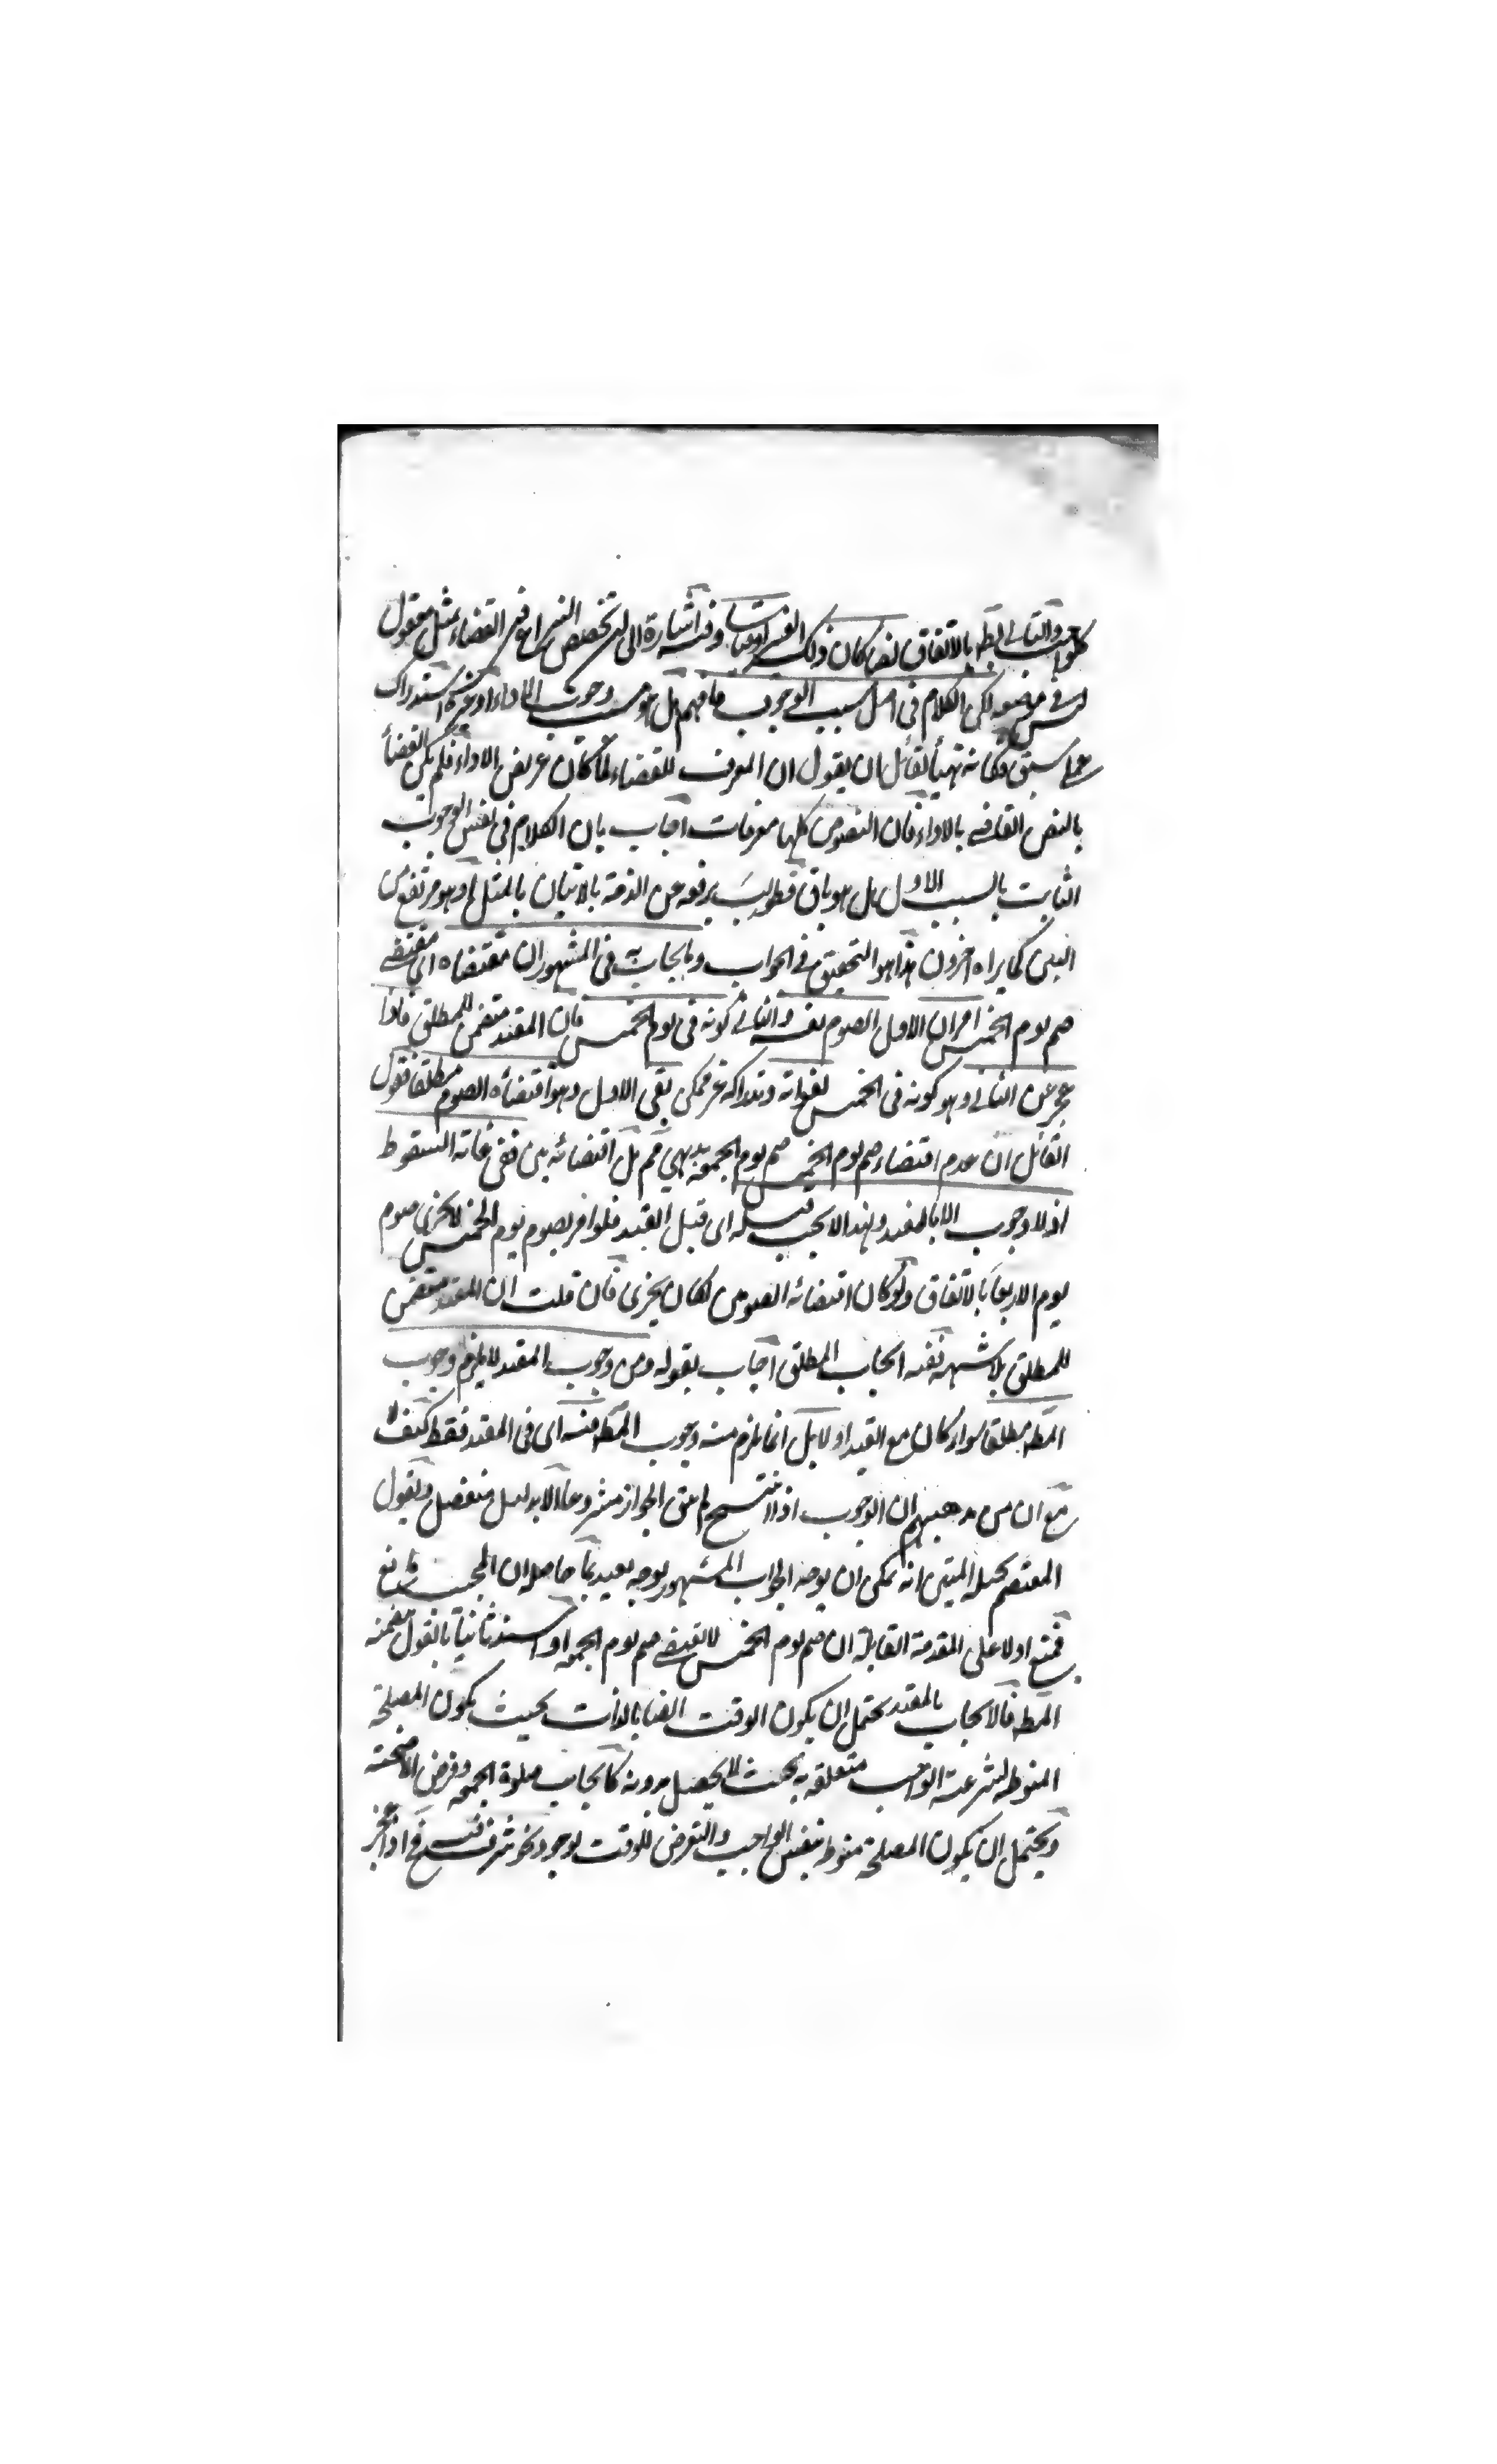 كلواحب والتالى بط بالاتفاق نصا كان ذلك الغير او قياسا وفيه اشارة الى ان تخصيص النزاع فى القضاء بمثل معقول
ليس فى موضعه لكن الكلام فى اصل سبب الوجوب فافهم بل هو سبب وجوب الاداء او غيره استدراك
عما سبق وكانه تهيأ لقائل ان يقول ان المعرف للقضاء لما كان غير نص الاداء فلم يكن القضأ
بالنص القاضى بالاداء فان النصوص كلها معرفات اجاب بان الكلام فى نفس الوجوب
الثابت بالسبب الاول بل هو باق فطولب برفعه عن الذمة بالاتيان بالمثل او هو مرتفع من
البين كما يراه اخرون هذا هو التحقيق فى الجواب وما يجاب به فى المشهور ان مقتضاه اى مقتضى
صم يوم الخميس امران الاول الصوم نفسه والثانى كونه فى يوم الخميس فان المقيد متضمن للمطلق فاذا
عجز عن الثانى وهو كونه فى الخميس لفواته وتداركه غير ممكن بقى الاول وهو اقتضاءه الصوم مطلقا فقول
القائل ان عدم اقتضاء صم يوم الخميس صم يوم الجمعة بديهى مم بل اقتضائه بين ففى غاية السقوط
اذ لا وجوب الا بالمقيد ولهذا لا يجب قبله اى قبل القيد فلو امر بصوم يوم الخميس لا يجزى صوم
يوم الاربعا بالاتفاق ولو كان اقتضائه الصوم لكان يجزى فان قلت ان المقيد متضمن
للمطلق بلا شبهة ففيه ايجاب المطلق اجاب بقوله ومن وجوب المقيد لا يلزم وجوب
المط مطلقا سواء كان مع القيد او لا بل انما يلزم منه وجوب المط فيه اى فى المقيد فقط كيف لا
مع ان من مذهبهم ان الوجوب اذا انتسخ لم يبق الجواز مشروعا الا بدليل منفصل ويقول
المعتصم بحبله المتين انه يمكن ان يوجه الجواب المشهور بوجه بعيد بما حاصله ان المجيب مانع
فمنع اولا على المقدمة القابلة ان صم يوم الخميس لا يقتضى صم يوم الجمعة او اسند ثانيا بالقول بتضمنه
المط فالايجاب بالمقيد يحتمل ان يكون الوقت ايضا بالذات بحيث يكون المصلحة
المنوطة لشرعية الواجب متعلقة به بحيث لا يحصل بدونه كايجاب صلوة الجمعة وفرض الاضحية
ويحتمل ان يكون المصلحة منوط بنفس الواجب والتعرض للوقت لوجود نحو شرف فيه فح اذا عجز